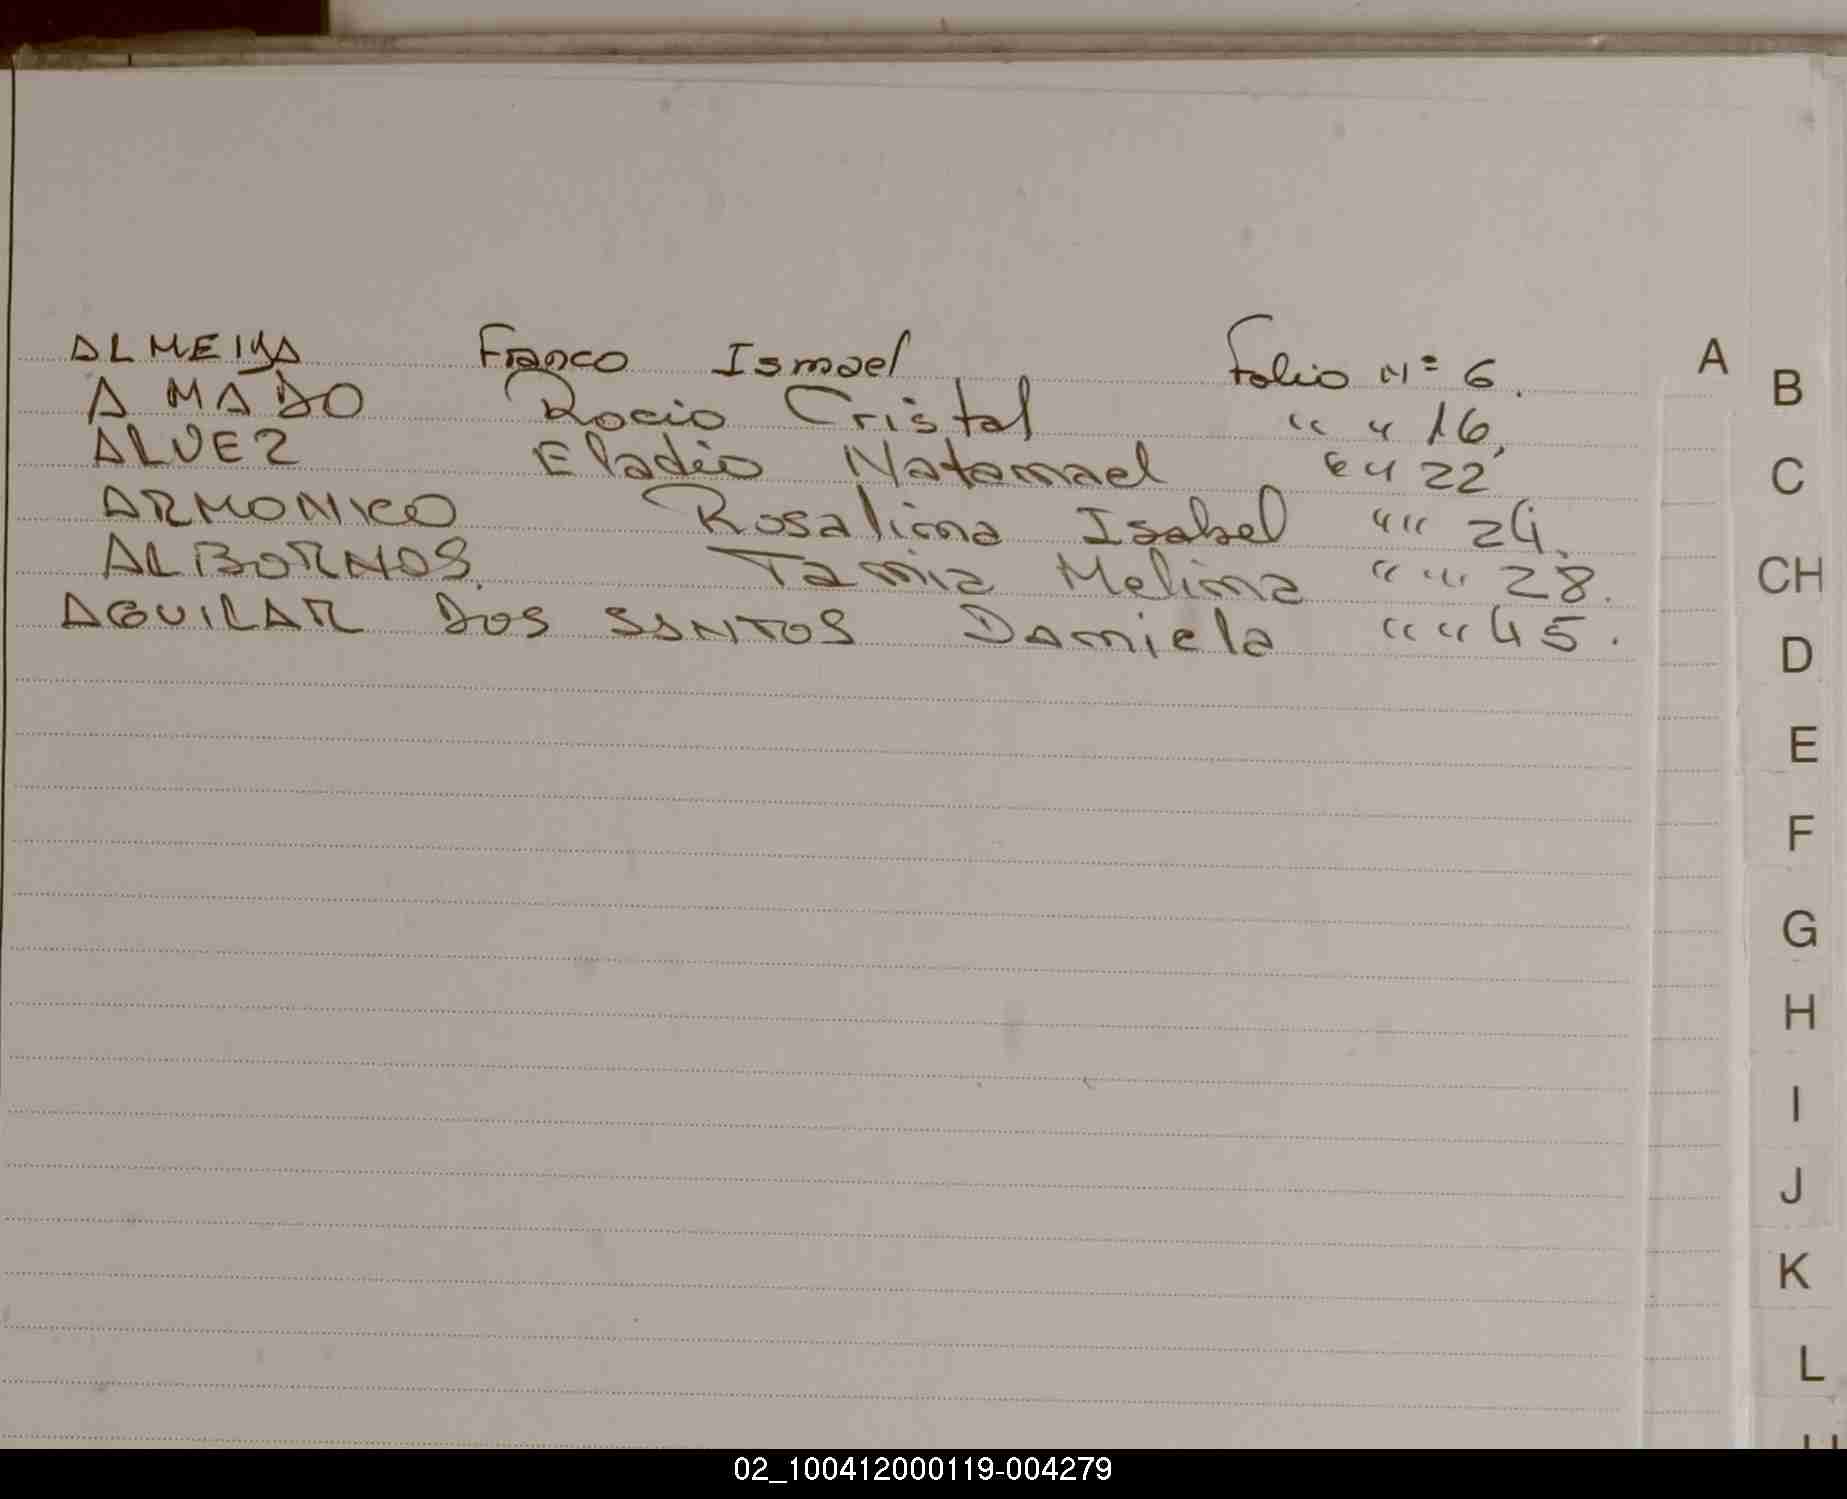 ALMEIDA Franco Ismael Folio Nº 6.
AMADO Rocio Cristal " " 16.
ALVEZ Eladio Natanael " " 22
ARMONICO Rosalina Isabel " " 24.
ALBORNOS. Tamia Melina " " 28.
AGUILAR DOS SANTOS Daniela " " 45.
A
B
C
CH
D
E
F
G
H
I
J
K
L
02_100412000119-004279